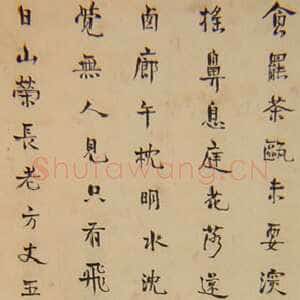 食罷茶甌未要深
搖鼻息庭花落還
囬廊午枕明水沈
覺無人見只有飛
日山榮長老方丈五
Shufawang.CN